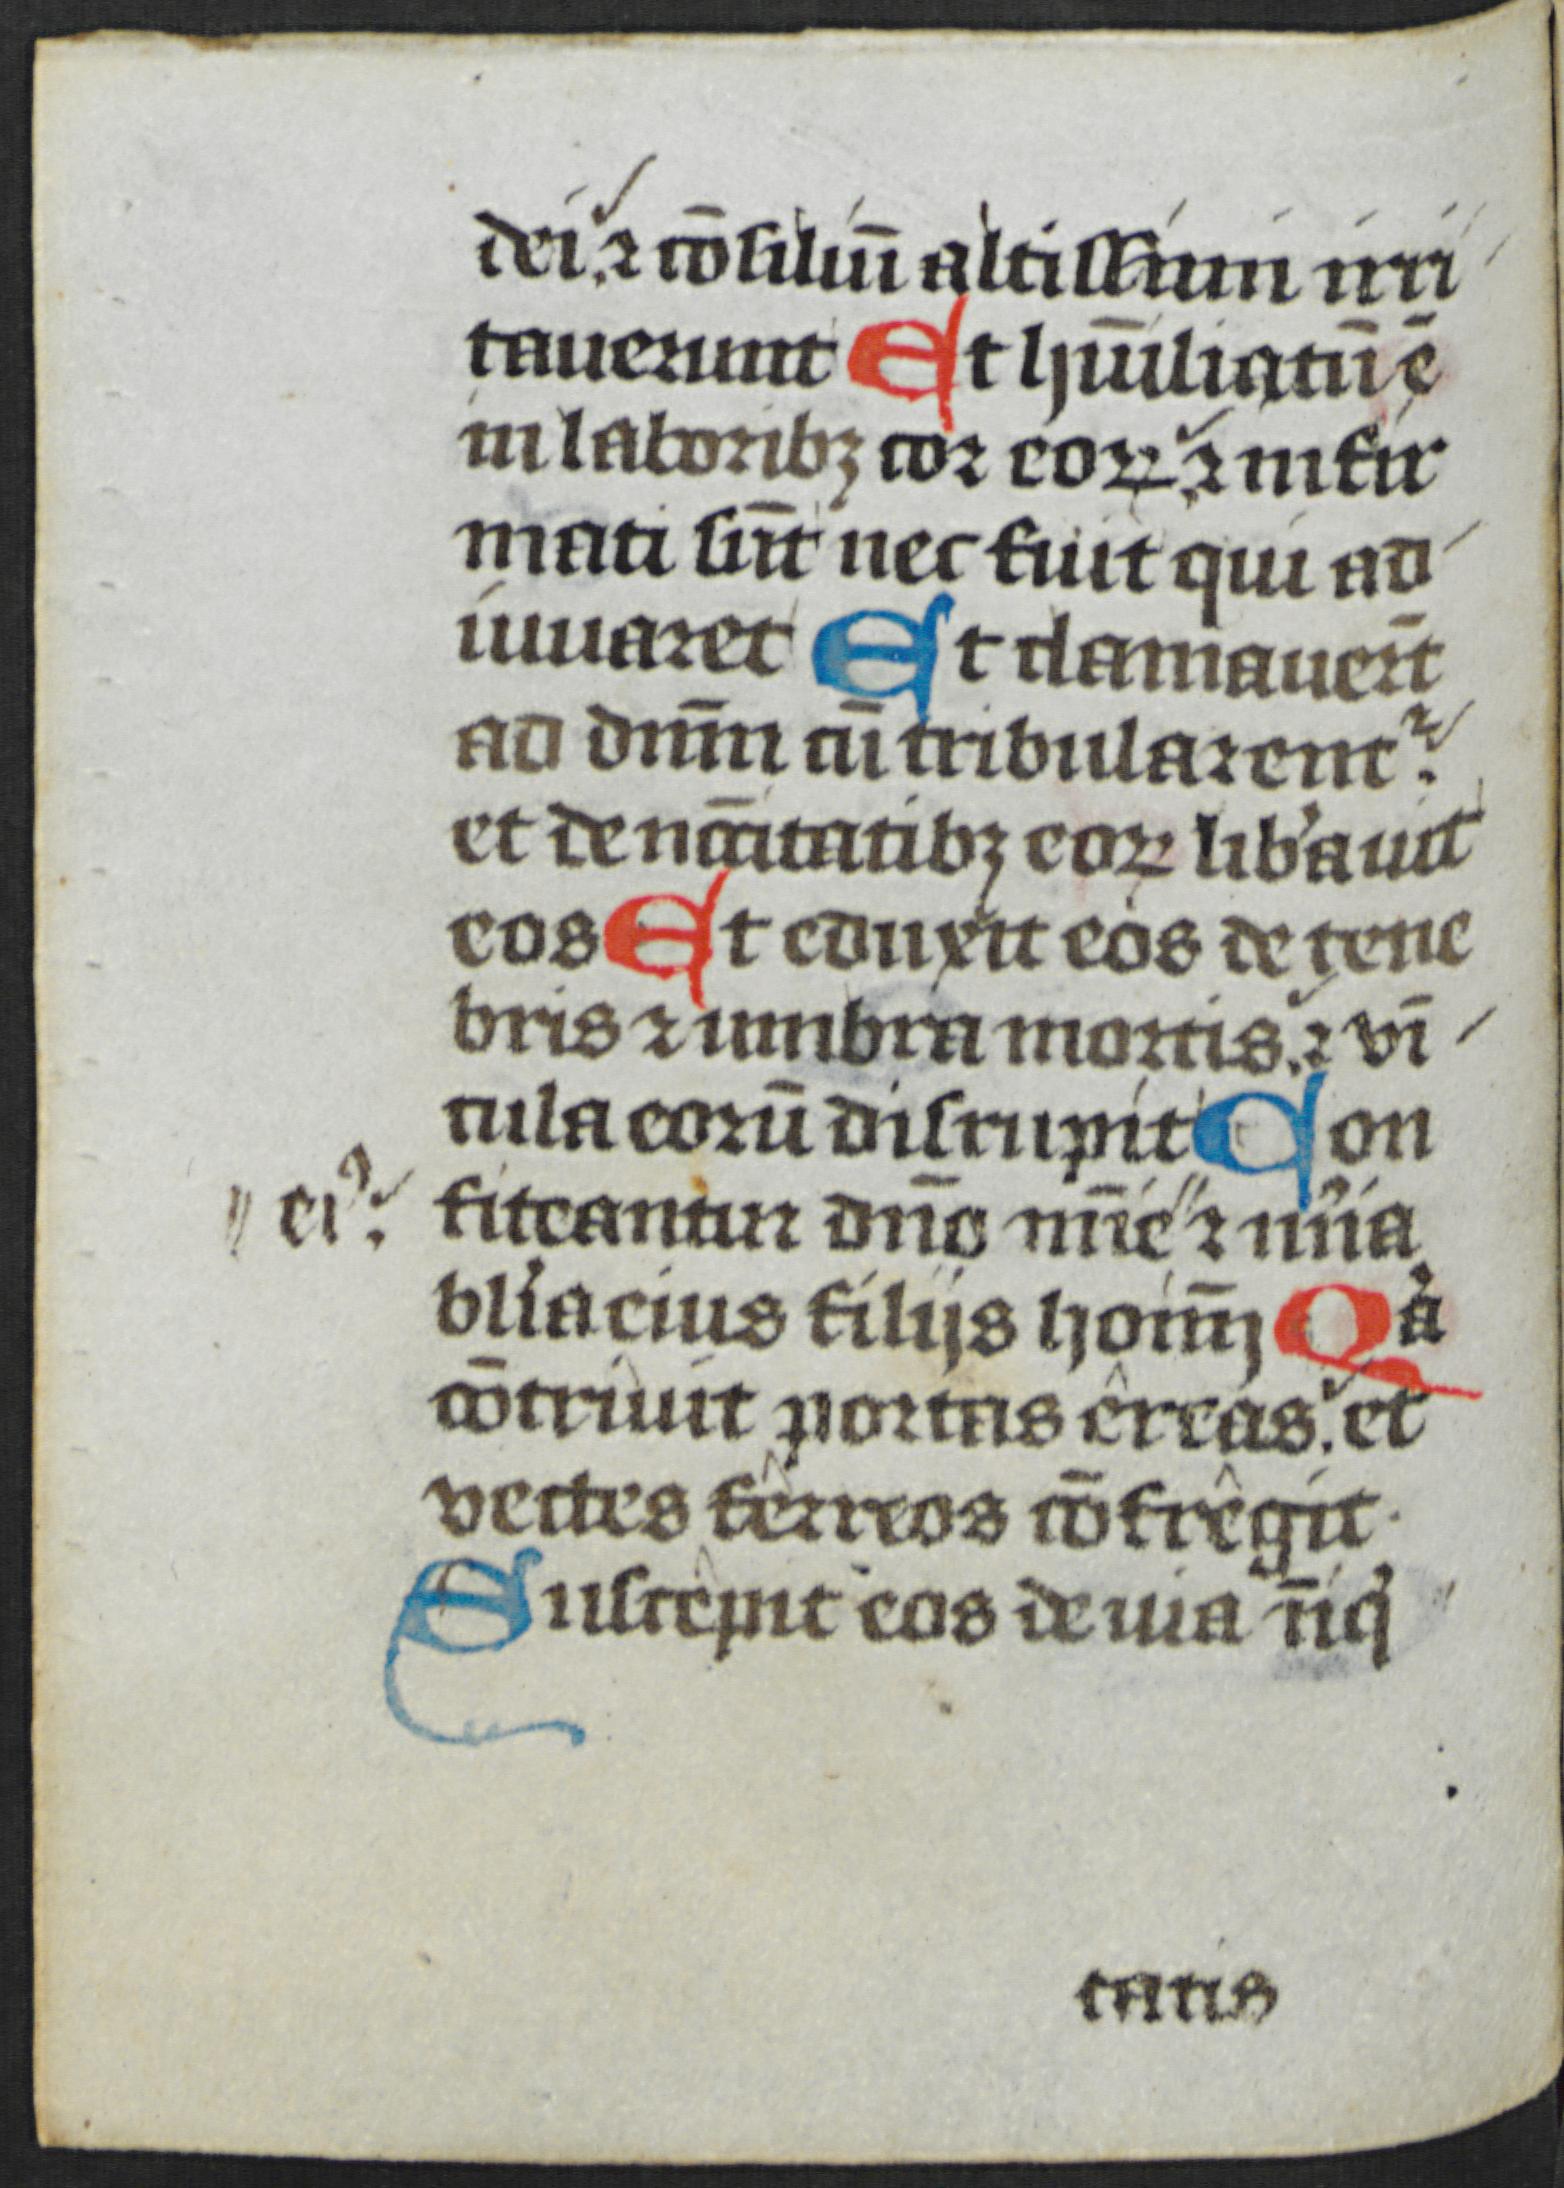 dei. ⁊ cōsiliū altissimi irri
tauerunt Et hūiliatū ē
in laboribꝫ cor eoꝝ. ⁊ infir
mati sūt nec fuit qui ad
iuuaret Et clamauerūt
ad dn̄m cū tribularent᷑.
et de nc̄citatibꝫ eoꝝ lib'auit
eos Et eduxit eos de tene
bris ⁊ umbra mortis. ⁊ vī
cula eorū disrupit Con
// eiꝰ. fiteantur dn̄o mīe ⁊ mi'a
bl'ia eius filijs hoīm Qa
cōtriuit portas erreas. et
vectes ferreos cōfregit.
Suscepit eos de uia īiq'
tatis